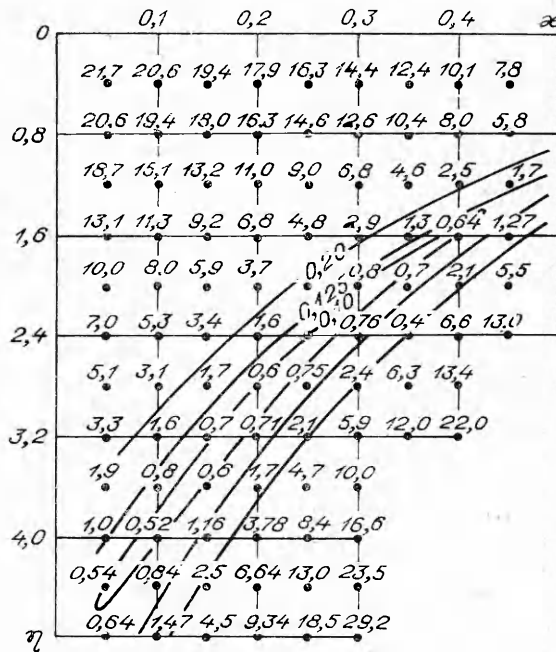 0,1 0,2 0,3 0,4 æ
0
21,7 20,6 19,4 17,9 16,3 14,4 12,4 10,1 7,8
0,8 20,6 19,4 18,0 16,3 14,6 12,6 10,4 8,0 5,8
18,7 15,1 13,2 11,0 9,0 6,8 4,6 2,5 1,7
1,6 13,1 11,3 9,2 6,8 4,8 2,9 1,3 0,64 1,27
0,20
10,0 8,0 5,9 3,7 0,8 0,7 2,1 5,5
0,125
2,4 7,0 5,3 3,4 1,6 0,76 0,4 6,6 13,0
5,1 3,1 1,7 0,6 0,75 2,4 6,3 13,4
3,2 3,3 1,6 0,7 0,71 2,1 5,9 12,0 22,0
1,9 0,8 0,6 1,7 4,7 10,0
4,0 1,0 0,52 1,16 3,78 8,4 16,6
0,54 0,84 2.5 6,64 13,0 23,5
η 0,64 1,47 4,5 9,34 18,5 29,2